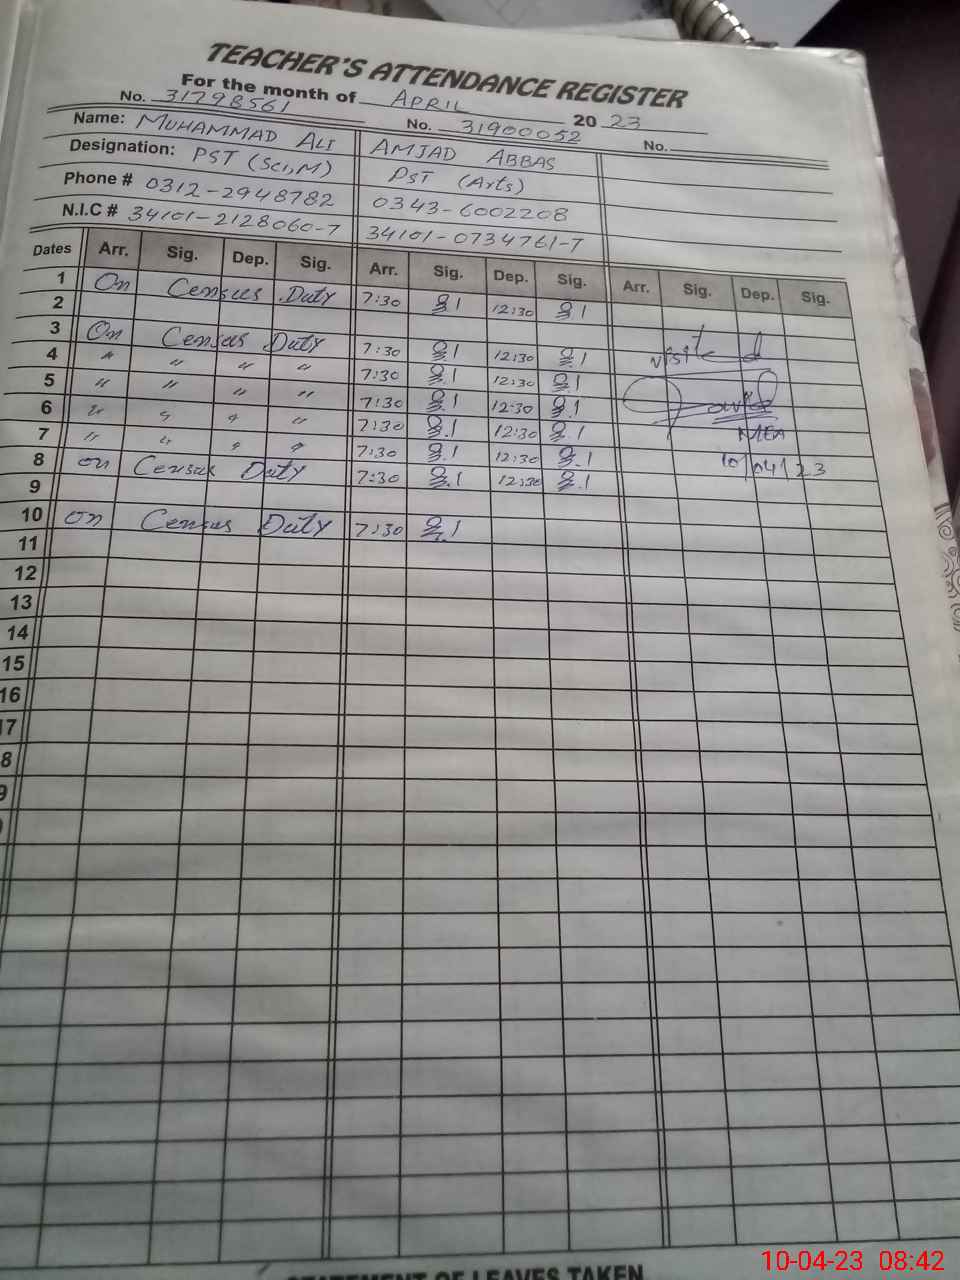 TEACHER'S ATTENDANCE REGISTER
For the month of APRIL 20 23
No. 31798561 No. 31900052 No.
Name: MUHAMMAD ALI AMJAD ABBAS
Designation: PST (Sci,M) PST (Arts)
Phone # 0312-2948782 0343-6002208
N.I.C # 34101-2128060-7 34101-0734761-7
Dates Arr. Sig. Dep. Sig. Arr. Sig. Dep. Sig. Arr. Sig. Dep. Sig.
1 On Census Duty 7:30 12:30
2
3 On Census Duty 7:30 12:30 visited
4 " " " " 7:30 12:30
5 " " " " 7:30 12:30
6 " " " " 7:30 12:30 MEA
7 " " " " 7:30 12:30
8 on Census Duty 7:30 12:30 10/04/23
9
10 on Census Duty 7:30
11
12
13
14
15
16
17
8
9
STATEMENT OF LEAVES TAKEN
10-04-23 08:42